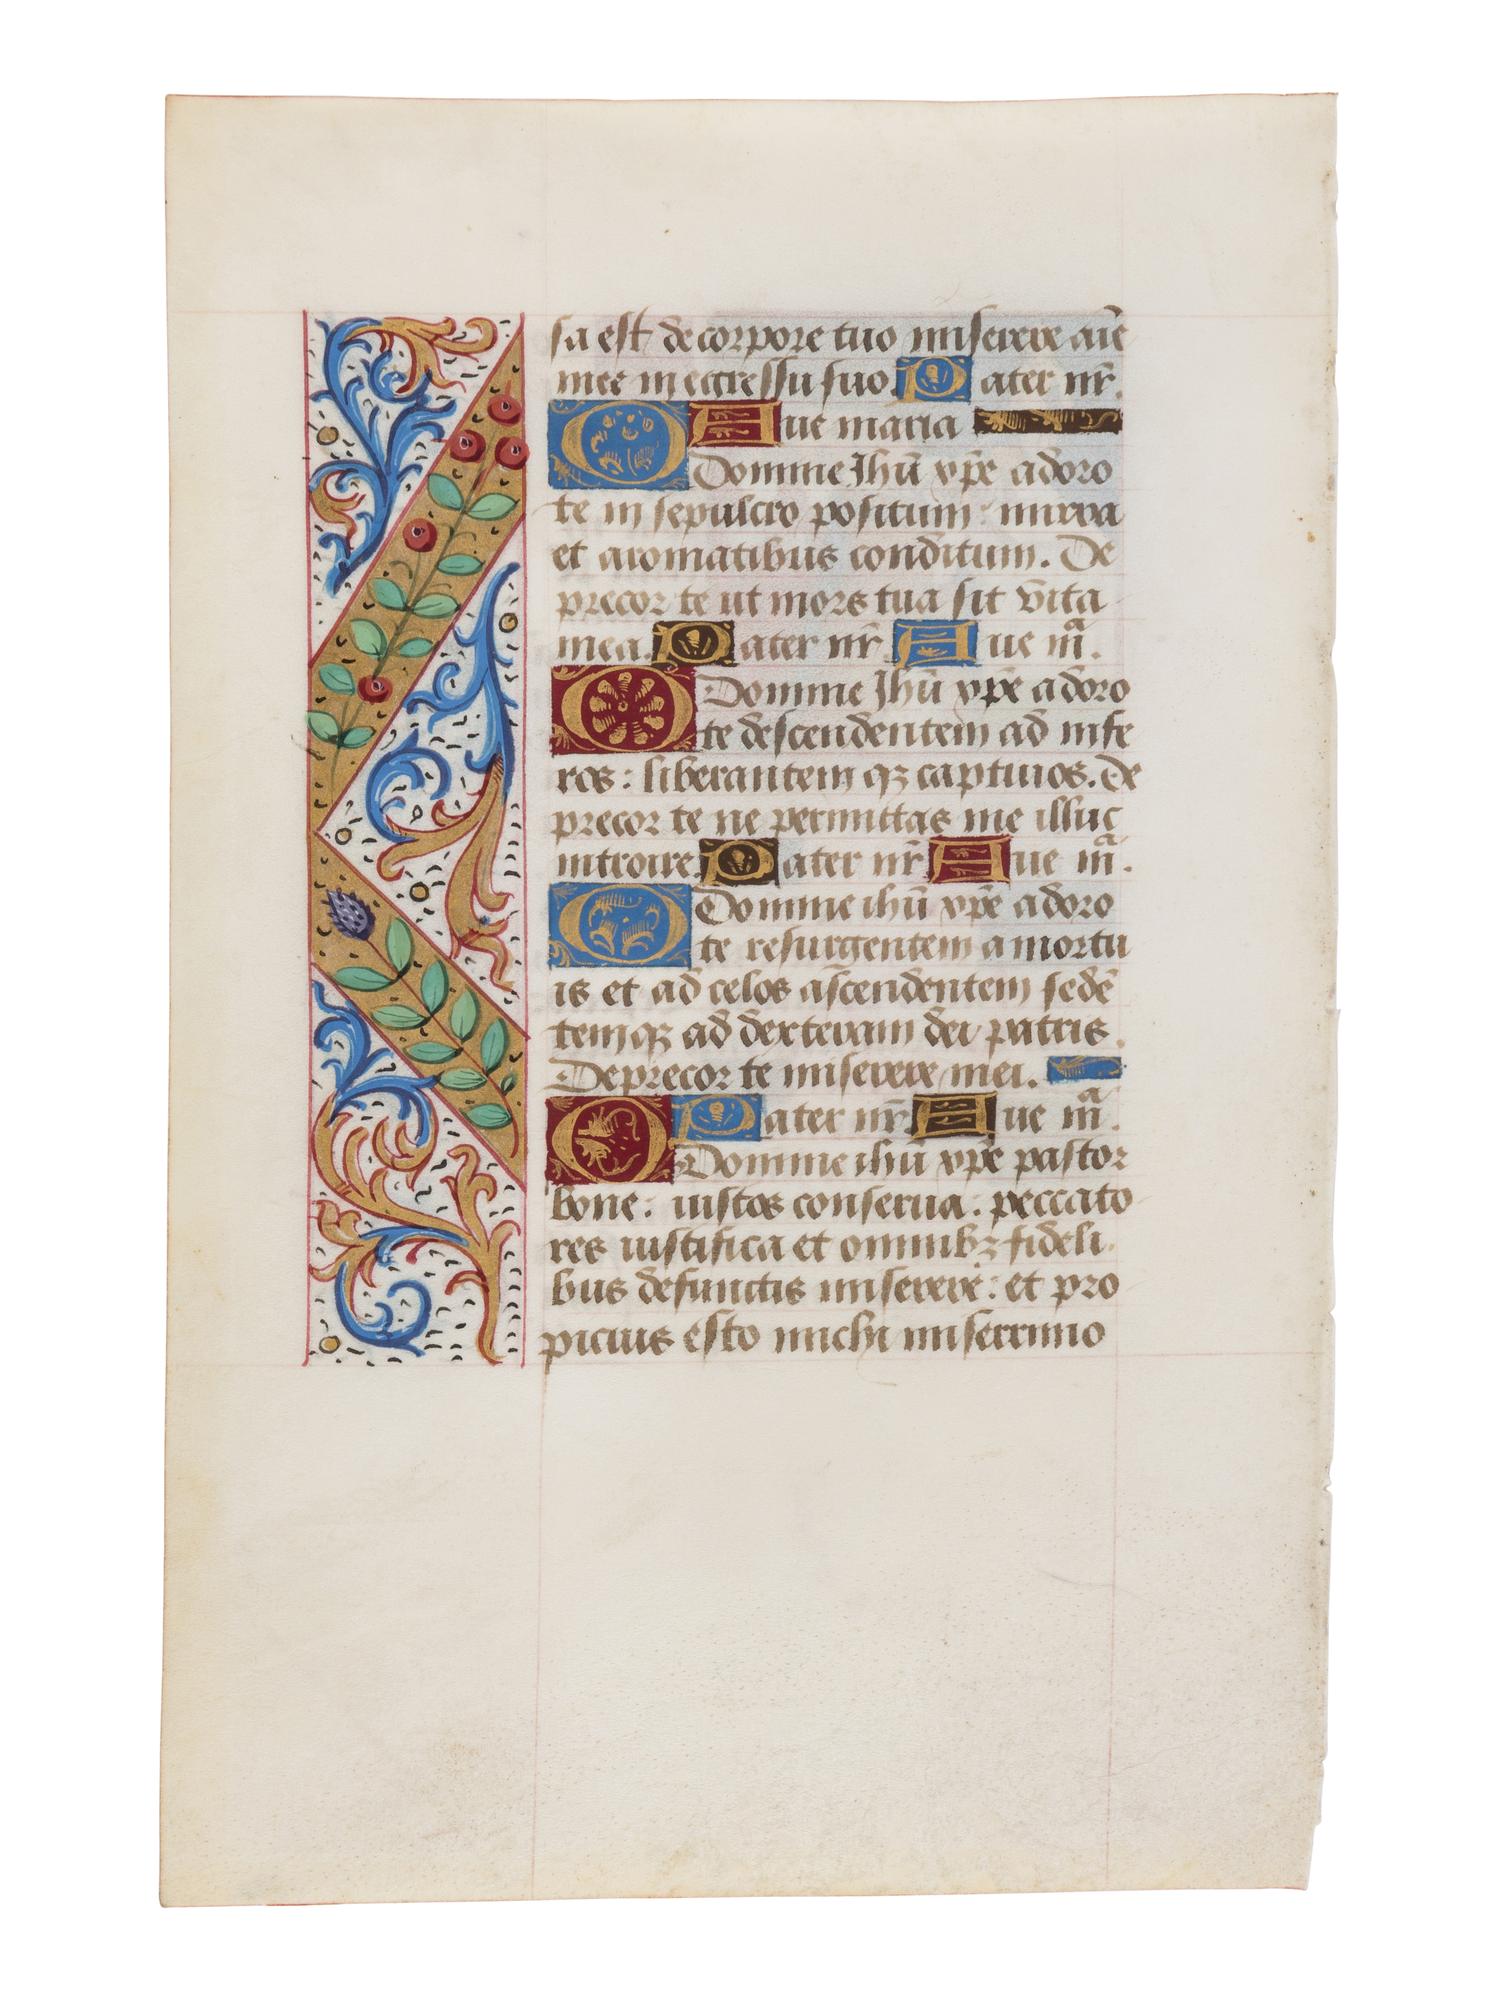 sa est de corpore tuo miserere aīe
mee in egressu suo. Pater nr̄.
Aue maria
O Domine Jhū xp̄e adoro
te in sepulcro positum: mirra
et aromatibus conditum. De
precor te ut mors tua sit vita
mea. Pater nr̄. Aue mͣ.
O Domine Jhū xp̄e adoro
te descendentem ad infe
ros: liberantem qꝫ captiuos. De
precor te ne permittas me illuc
introire. Pater nr̄ Aue mͣ.
O Domine ihū xp̄e adoro
te resurgentem a mortu
is et ad celos ascendentem sedē
temqꝫ ad dexteram dei patris.
Deprecor te miserere mei.
Pater nr̄. Aue mͣ.
O Domine ihū xp̄e pastor
bone: iustos conserua: peccato
res iustifica et omnibꝫ fideli
bus defunctis miserere: et pro
picius esto michi miserrimo